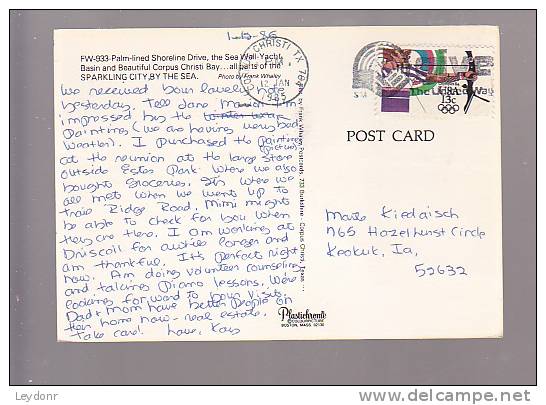 1-13-86
FW-933-Palm-lined Shoreline Drive, the Sea Wall-Yacht
Basin and Beautiful Corpus Christi Bay...all parts of the
SPARKLING CITY BY THE SEA. Photo by Frank Whaley
We received your lovely note
yesterday. Tell Jane, I'm
impressed by the
Paintings (we are having very bad
weather). I purchased the painting
(picture)
at the reunion at the large store
outside Estes Park. Where we also
bought groceries. It's where we
all met when we went up to
Trail Ridge Road. Mimi might
be able to check for you when
they are there. I am working at
Driscoll for awhile longer and
am thankful. It's perfect right
now. Am doing volunteer counseling
and taking piano lessons. We're
looking forward to your visit.
Dad & Mom have better people in
their home now - real estate.
Take care! Love, Kay
CORPUS CHRISTI TX
JAN
1985
USA
13c
The United Way
POST CARD
by Frank Whaley Postcards, 733 Burkshire - Corpus Christi, Texas
Marie Kiedaisch
765 Hazelhurst Circle
Keokuk, Ia,
52632
Plastichrome
® COLOURPICTURE
BOSTON, MASS. 02130
Leydonr
delcampe.net